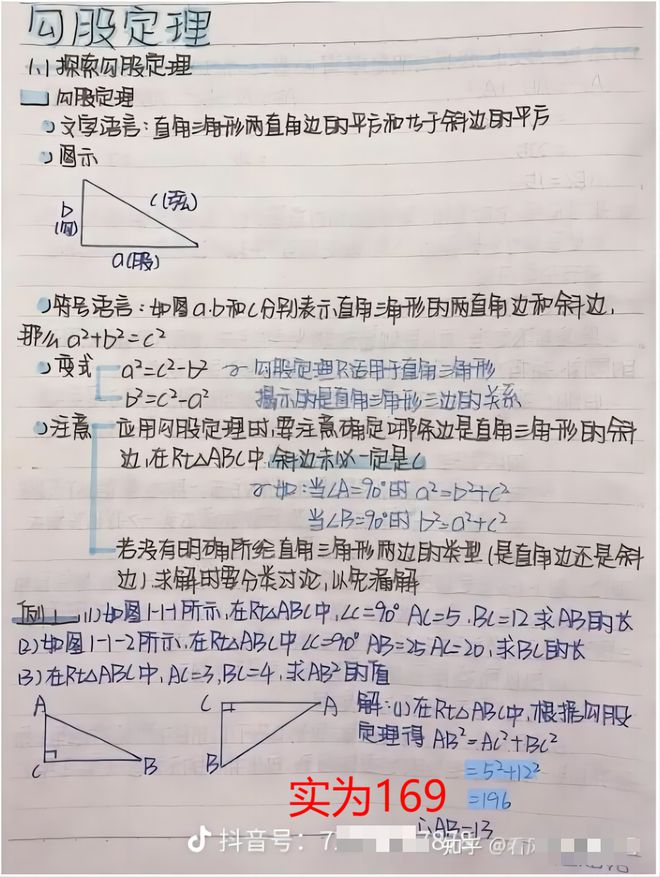 勾股定理
(1) 探索勾股定理
勾股定理
文字语言:直角三角形两直角边的平方和等于斜边的平方
图示
b
c(弦)
a(股)
符号语言:如图a.b和c分别表示直角三角形的两直角边和斜边,
那么 a²+b²=c²
变式 a²=c²-b² 勾股定理只适用于直角三角形
b²=c²-a² 揭示的是直角三角形三边的关系
注意 应用勾股定理时,要注意确定哪条边是直角三角形的斜
边,在Rt△ABC中,斜边未必一定是c
如:当∠A=90°时 a²=b²+c²
当∠B=90°时 b²=a²+c²
若没有明确所给直角三角形两边的类型(是直角边还是斜
边).求解时要分类讨论,以免漏解
例1 (1)如图1-1-1所示,在Rt△ABC中,∠C=90° AC=5,BC=12求AB的长
(2)如图1-1-2所示,在Rt△ABC中 ∠C=90° AB=25 AC=20,求BC的长
(3)在Rt△ABC中,AC=3,BC=4,求AB²的值
A
C
B
C
A
B
解:(1)在Rt△ABC中,根据勾股
定理得 AB²=AC²+BC²
=5²+12²
=196
实为169
∴AB=13
抖音号:7
知乎 @石